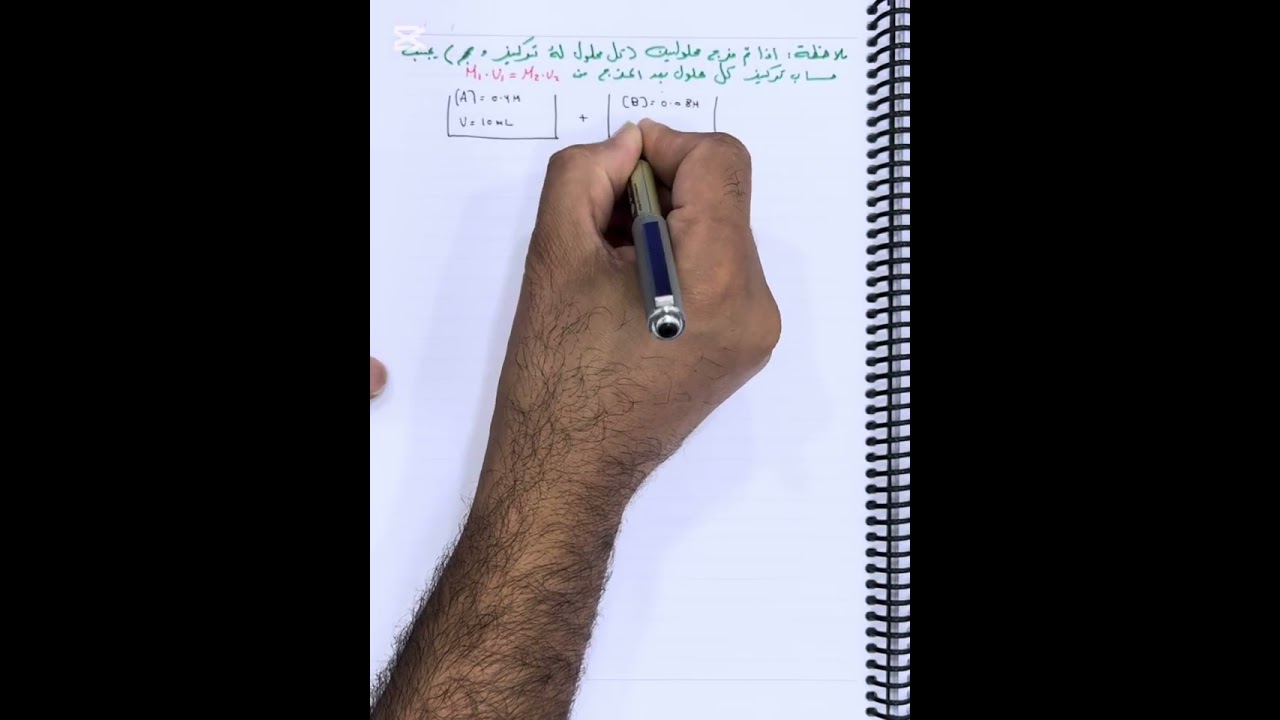 ملاحظة: اذا تم مزج محلولين (كل محلول له تركيز وحجم) يجب
حساب تركيز كل محلول بعد المزج من M₁.V₁ = M₂.V₂
[A] = 0.4M + [B] = 0.08M
V = 10mL